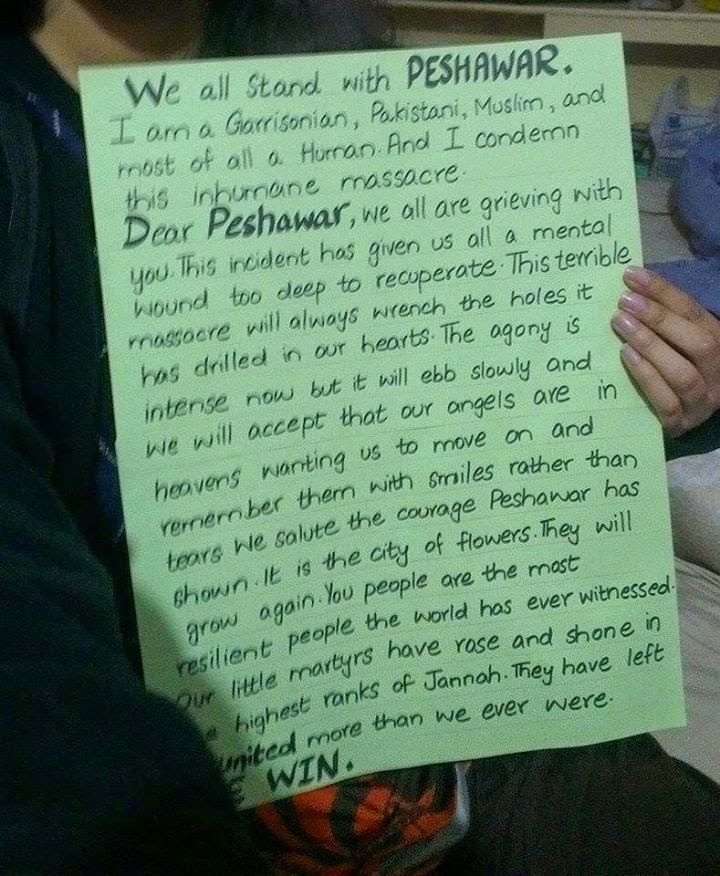 We all Stand with PESHAWAR.
I am a Garrisonian, Pakistani, Muslim, and
most of all a Human. And I condemn
this inhumane massacre.
Dear Peshawar, we all are grieving with
you. This incident has given us all a mental
wound too deep to recuperate. This terrible
massacre will always wrench the holes it
has drilled in our hearts. The agony is
intense now but it will ebb slowly and
we will accept that our angels are in
heavens wanting us to move on and
remember them with smiles rather than
tears We salute the courage Peshawar has
shown. It is the city of flowers. They will
grow again. You people are the most
resilient people the world has ever witnessed.
Our little martyrs have rose and shone in
highest ranks of Jannah. They have left
united more than we ever were.
WIN.